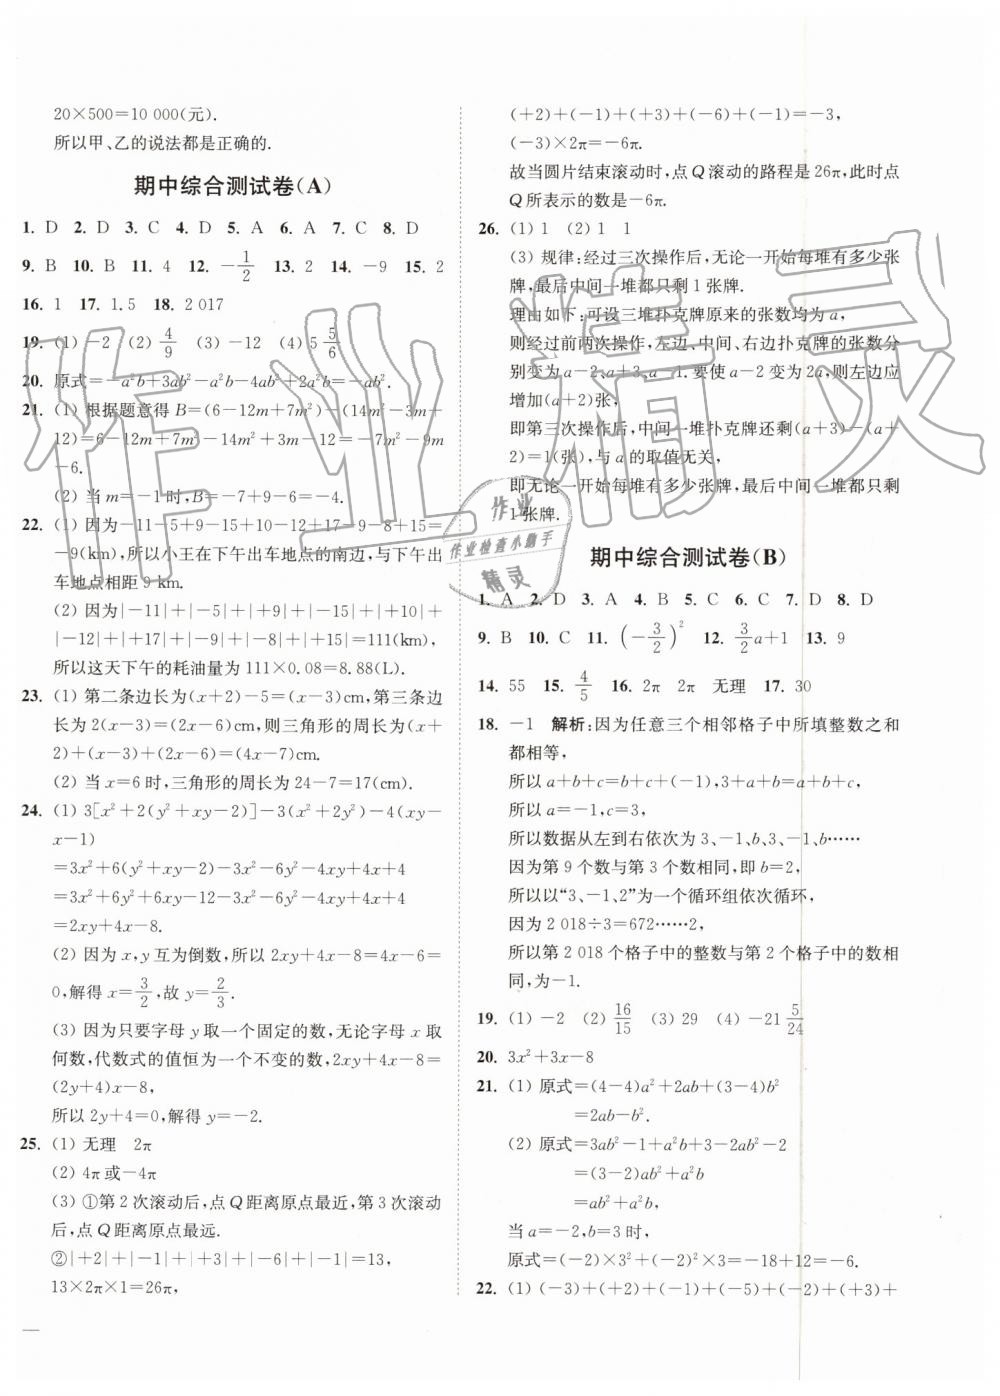 20×500=10 000(元).
所以甲、乙的说法都是正确的.
期中综合测试卷(A)
1. D 2. D 3. C 4. D 5. A 6. A 7. C 8. D
9. B 10. B 11. 4 12. -1/2 13. 2 14. -9 15. 2
16. 1 17. 1.5 18. 2 017
19. (1) -2 (2) 4/9 (3) -12 (4) 5 5/6
20. 原式=-a²b+3ab²-a²b-4ab²+2a²b=-ab².
21. (1) 根据题意得 B=(6-12m+7m²)-(14m²-3m+
12)=6-12m+7m²-14m²+3m-12=-7m²-9m
-6.
(2) 当 m=-1 时,B=-7+9-6=-4.
22. (1) 因为-11-5+9-15+10-12+17-9-8+15=
-9(km),所以小王在下午出车地点的南边,与下午出
车地点相距 9 km.
(2) 因为|-11|+|-5|+|+9|+|-15|+|+10|+
|-12|+|+17|+|-9|+|-8|+|+15|=111(km),
所以这天下午的耗油量为 111×0.08=8.88(L).
23. (1) 第二条边长为(x+2)-5=(x-3)cm,第三条边
长为 2(x-3)=(2x-6)cm,则三角形的周长为(x+
2)+(x-3)+(2x-6)=(4x-7)cm.
(2) 当 x=6 时,三角形的周长为 24-7=17(cm).
24. (1) 3[x²+2(y²+xy-2)]-3(x²+2y²)-4(xy-
x-1)
=3x²+6(y²+xy-2)-3x²-6y²-4xy+4x+4
=3x²+6y²+6xy-12-3x²-6y²-4xy+4x+4
=2xy+4x-8.
(2) 因为 x,y 互为倒数,所以 2xy+4x-8=4x-6=
0,解得 x=3/2,故 y=2/3.
(3) 因为只要字母 y 取一个固定的数,无论字母 x 取
何数,代数式的值恒为一个不变的数,2xy+4x-8=
(2y+4)x-8,
所以 2y+4=0,解得 y=-2.
25. (1) 无理 2π
(2) 4π或-4π
(3) ①第 2 次滚动后,点 Q 距离原点最近,第 3 次滚动
后,点 Q 距离原点最远.
②|+2|+|-1|+|+3|+|-6|+|-1|=13,
13×2π×1=26π,
(+2)+(-1)+(+3)+(-6)+(-1)=-3,
(-3)×2π=-6π.
故当圆片结束滚动时,点 Q 滚动的路程是 26π,此时点
Q 所表示的数是-6π.
26. (1) 1 (2) 1 1
(3) 规律:经过三次操作后,无论一开始每堆有多少张
牌,最后中间一堆都只剩 1 张牌.
理由如下:可设三堆扑克牌原来的张数均为 a,
则经过前两次操作,左边、中间、右边扑克牌的张数分
别变为 a-2、a+3、a-1.要使 a-2 变为 2a,则左边应
增加(a+2)张,
即第三次操作后,中间一堆扑克牌还剩(a+3)-(a+
2)=1(张),与 a 的取值无关,
即无论一开始每堆有多少张牌,最后中间一堆都只剩
1 张牌.
期中综合测试卷(B)
1. A 2. D 3. A 4. B 5. C 6. C 7. D 8. D
9. B 10. C 11. (-3/2)² 12. 3/2a+1 13. 9
14. 55 15. 4/5 16. 2π 2π 无理 17. 30
18. -1 解析:因为任意三个相邻格子中所填整数之和
都相等,
所以 a+b+c=b+c+(-1),3+a+b=a+b+c,
所以 a=-1,c=3,
所以数据从左到右依次为 3、-1、b、3、-1、b……
因为第 9 个数与第 3 个数相同,即 b=2,
所以以“3、-1、2”为一个循环组依次循环,
因为 2 018÷3=672……2,
所以第 2 018 个格子中的整数与第 2 个格子中的数相
同,为-1.
19. (1) -2 (2) 16/15 (3) 29 (4) -21 5/24
20. 3x²+3x-8
21. (1) 原式=(4-4)a²+2ab+(3-4)b²
=2ab-b².
(2) 原式=3ab²-1+a²b+3-2ab²-2
=(3-2)ab²+a²b
=ab²+a²b,
当 a=-2,b=3 时,
原式=(-2)×3²+(-2)²×3=-18+12=-6.
22. (1) (-3)+(+2)+(-1)+(-5)+(-2)+(+3)+
作业精灵
作业
作业检查小助手
精灵